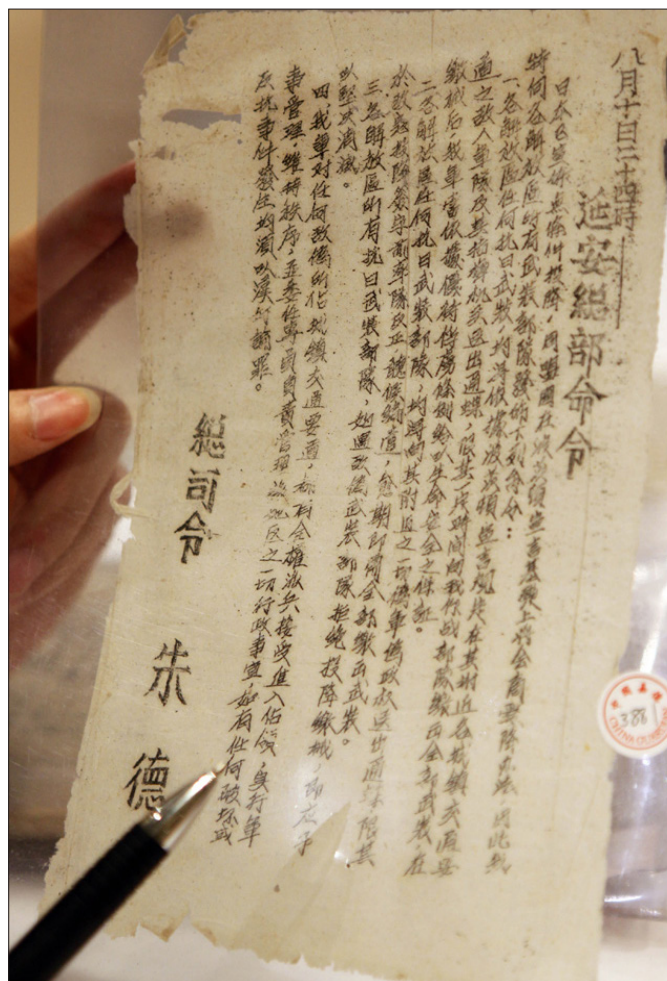 八月十日二十四時
延安總部命令
日本已宣佈無條件投降,同盟國在波茨頓宣言基礎上將会商受降办法,因此我
特向各解放區所有武裝部隊發佈下列命令:
一.各解放區任何抗日武裝,均得依據波茨頓宣言規定在其附近各城鎮交通要
道之敌人軍隊及其指揮机关送出通牒,限其一定時间向我作战部隊繳出全部武裝,在
繳械后,我軍當依據優待俘虜條例給以生命安全之保証。
二.各解放區任何抗日武裝部隊,均得向其附近之一切偽軍偽政权送出通牒限其
於敌寇投降簽字前率隊反正聽候編遣,愈期即須全部繳出武裝。
三.各解放區所有抗日武裝部隊,如遇敌偽武裝部隊拒绝投降繳械,即應予
以堅決消滅。
四.我軍对任何敌偽所佔城鎮交通要道,都有全權派兵接受進入佔領,实行軍
事管理,維持秩序,並委任專員負責管理該地区之一切行政事宜,如有任何破坏或
反抗事件發生均須以漢奸論罪。
總司令 朱德
386
CHINA GUARDIAN